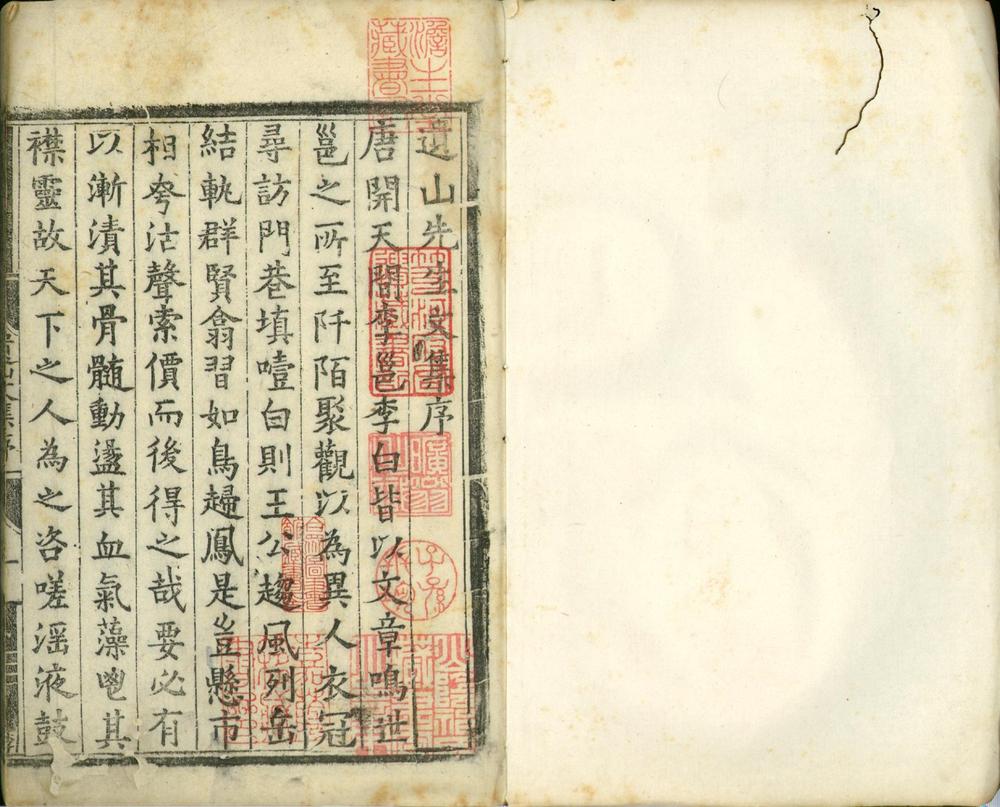 遺山先生文集序
唐開天間李邕李白皆以文章鳴世
邕之所至阡陌聚觀以為異人衣冠
尋訪門巷填噎白則王公趨風列岳
結軌群賢翕習如鳥歸鳳是豈懸市
相夸沽聲索價而後得之哉要必有
以漸漬其骨髓動盪其血氣藻鬯其
襟靈故天下之人為之咨嗟滛液鼓
澹生堂
藏書
曠翁
子孫